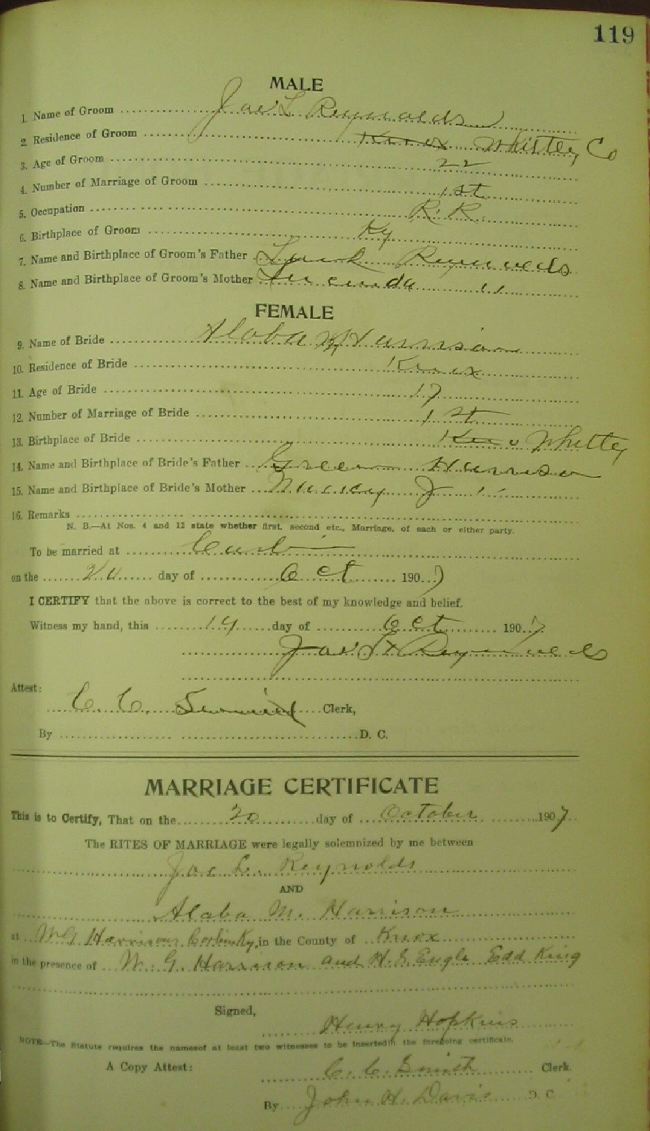 119
MALE
1. Name of Groom Jas L Reynolds
2. Residence of Groom Knox Whitley Co
3. Age of Groom 22
4. Number of Marriage of Groom 1st
5. Occupation R. R.
6. Birthplace of Groom Ky
7. Name and Birthplace of Groom's Father Reynolds
8. Name and Birthplace of Groom's Mother Lucinda "
FEMALE
9. Name of Bride Alaba M Harrison
10. Residence of Bride Knox
11. Age of Bride 17
12. Number of Marriage of Bride 1st
13. Birthplace of Bride Knox Whitley
14. Name and Birthplace of Bride's Father Green Harrison
15. Name and Birthplace of Bride's Mother Nancy J "
16. Remarks
N. B.—At Nos. 4 and 12 state whether first, second etc., Marriage, of each or either party.
To be married at Corbin
on the 20 day of Oct 1907
I CERTIFY that the above is correct to the best of my knowledge and belief.
Witness my hand, this 19 day of Oct 1907
Jas L Reynolds
Attest:
C. C. Clerk,
By D. C.
MARRIAGE CERTIFICATE
This is to Certify, That on the 20 day of October 1907
The RITES OF MARRIAGE were legally solemnized by me between
Jas L. Reynolds
AND
Alaba M. Harrison
at W G Harrison Corbin Ky, in the County of Knox
in the presence of W. G. Harrison and H. S. Engle Edd King
Signed,
Henry Hopkins
NOTE—The Statute requires the names of at least two witnesses to be inserted in the foregoing certificate.
A Copy Attest: C. C. Smith Clerk.
By John H. Davis D. C.